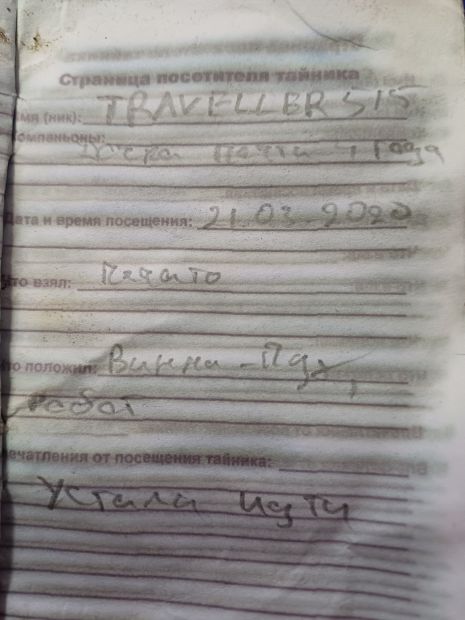 Страница посетителя тайника
мя (ник): TRAVELLER 515
омпаньоны:
почти 4 года
Дата и время посещения: 21.03.2020
то взял:
то положил: Винни-Пух,
робот
ечатления от посещения тайника:
Устали идти